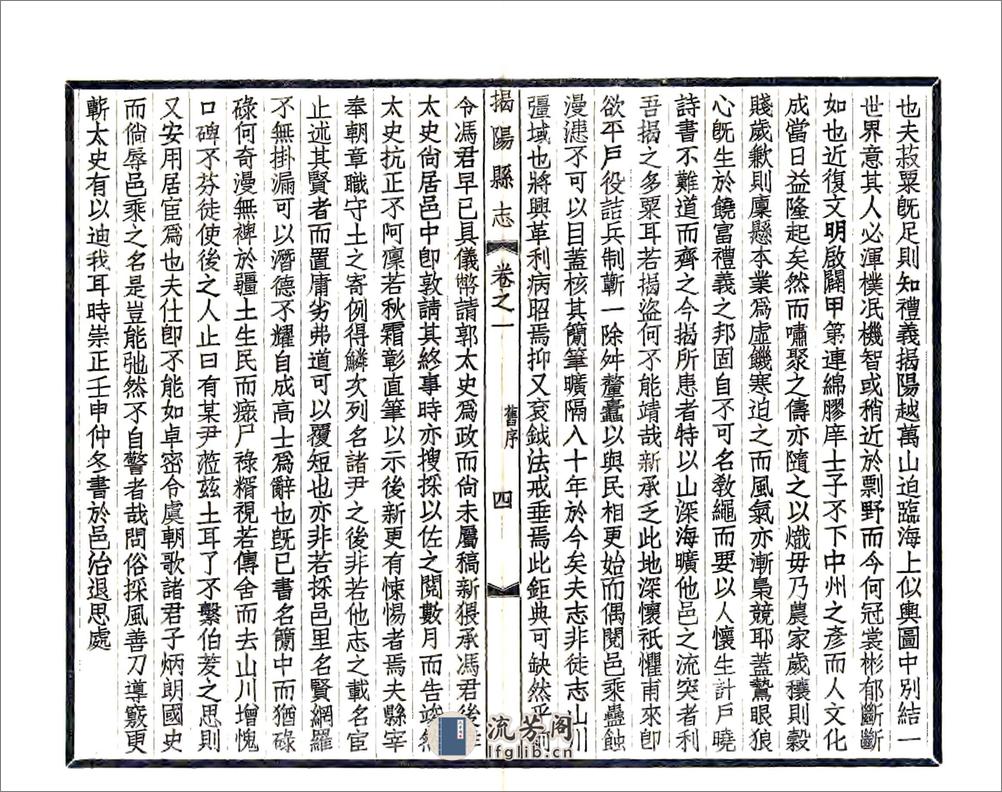 也夫菽粟旣足則知禮義揭陽越萬山迫臨海上似輿圖中別結一
世界意其人必渾樸冺機智或稍近於剽野而今何冠裳彬郁斷斷
如也近復文明啟闢甲第連綿膠庠士子不下中州之彥而人文化
成當日益隆起矣然而嘯聚之儔亦隨之以熾毋乃農家歲穰則穀
賤歲歉則廩懸本業爲虛饑寒迫之而風氣亦漸梟競耶蓋鷙眼狼
心旣生於饒富禮義之邦固自不可名敎繩而要以人懷生計戶曉
詩書不難道而齊之今揭所患者特以山深海曠他邑之流突者利
吾揭之多粟耳若揭盜何不能靖哉新承乏此地深懷祇懼甫來卽
欲平戶役詰兵制蘄一除舛釐蠹以與民相更始而偶閱邑乘蠱蝕
漫漶不可以目蓋核其簡筆曠隔八十年於今矣夫志非徒志山川
彊域也將興革利病昭焉抑又袞鉞法戒垂焉此鉅典可缺然乎前
揭陽縣志 卷之一 舊序 四
令馮君早已具儀幣請郭太史爲政而尙未屬稿新猥承馮君後
太史尙居邑中卽敦請其終事時亦搜採以佐之閱數月而告竣
太史抗正不阿凜若秋霜彰直筆以示後新更有悚惕者焉夫縣宰
奉朝章職守土之寄例得鱗次列名諸尹之後非若他志之載名宦
止述其賢者而置庸劣弗道可以覆短也亦非若採邑里名賢網羅
不無掛漏可以潛德不耀自成高士爲辭也旣已書名簡中而猶碌
碌何奇漫無裨於疆土生民而瘝尸祿糈視若傳舍而去山川增愧
口碑不芬徒使後之人止曰有某尹蒞茲土耳了不繫伯茇之思則
又安用居宦爲也夫仕卽不能如卓密令虞朝歌諸君子炳朗國史
而倘辱邑乘之名是豈能弛然不自警者哉問俗採風善刀導竅更
蘄太史有以迪我耳時崇正壬申仲冬書於邑治退思處
流芳阁
lfglib.cn